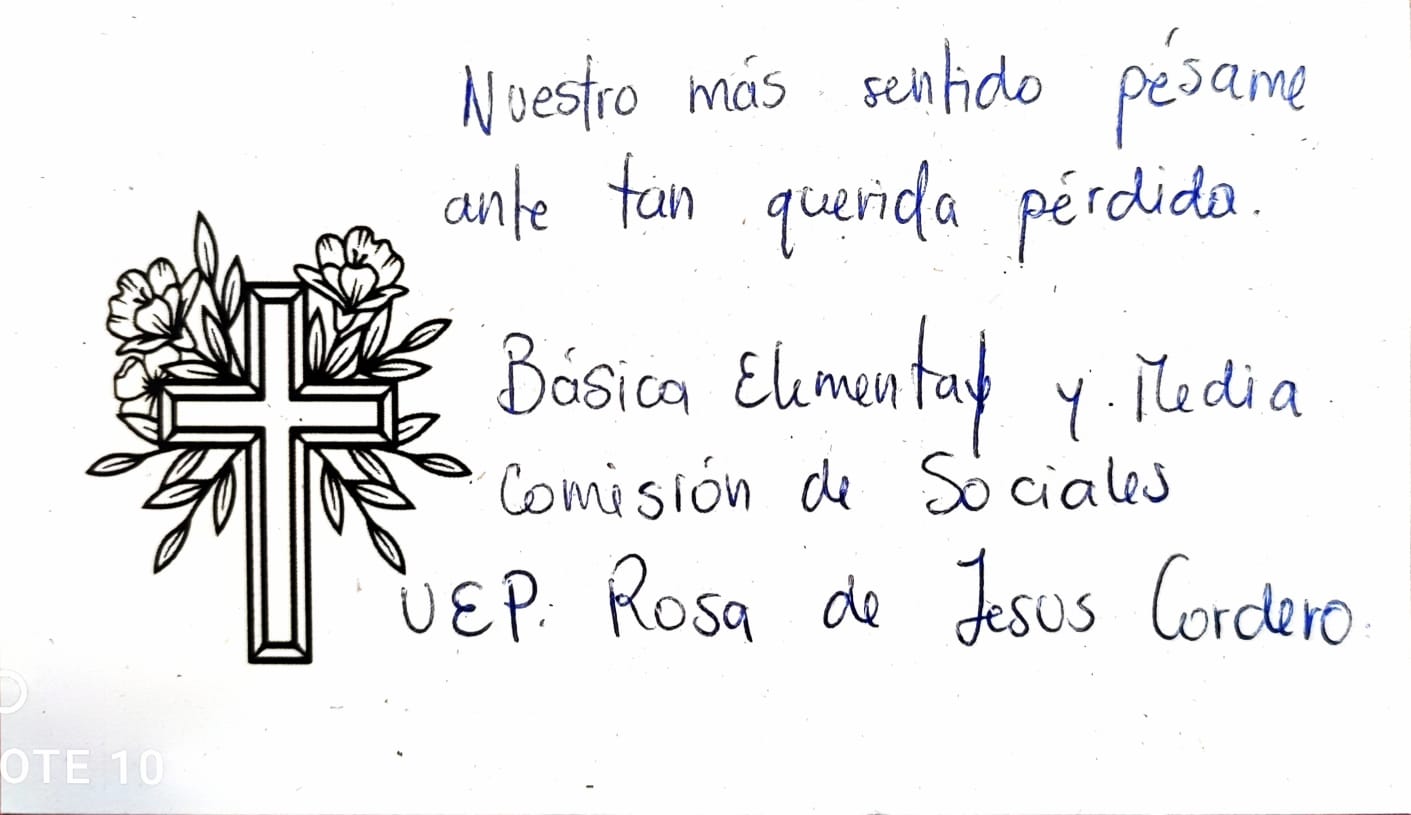 Nuestro más sentido pésame
ante tan querida pérdida.
Básica Elemental y Media
Comisión de Sociales
UEP. Rosa de Jesus Cordero
OTE 10